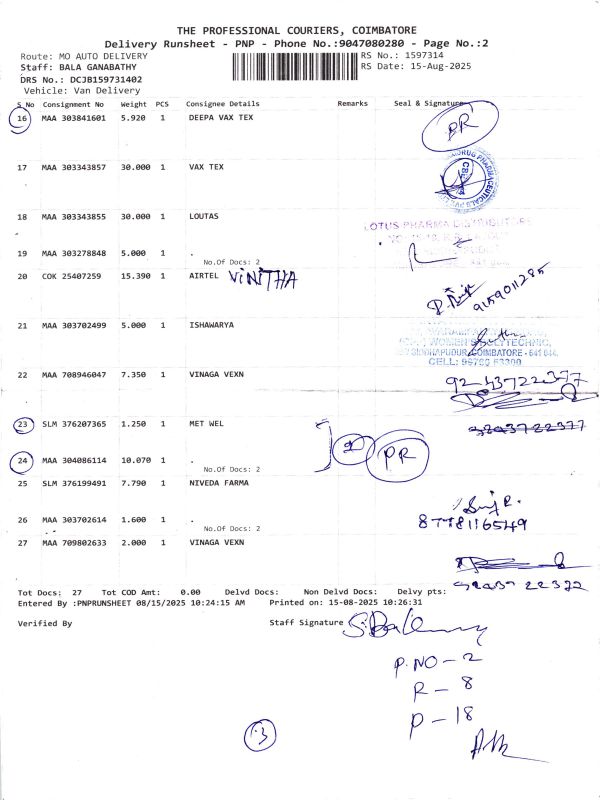 THE PROFESSIONAL COURIERS, COIMBATORE
Delivery Runsheet - PNP - Phone No.:9047080280 - Page No.:2
Route: MO AUTO DELIVERY RS No.: 1597314
Staff: BALA GANABATHY RS Date: 15-Aug-2025
DRS No.: DCJB159731402
Vehicle: Van Delivery
S No Consignment No Weight PCS Consignee Details Remarks Seal & Signature
16 MAA 303841601 5.920 1 DEEPA VAX TEX PR
17 MAA 303343857 30.000 1 VAX TEX
18 MAA 303343855 30.000 1 LOUTAS
LOTUS PHARMA DISTRIBUTORS
19 MAA 303278848 5.000 1 .
No.Of Docs: 2
20 COK 25407259 15.390 1 AIRTEL VINITHA
9159011285
21 MAA 303702499 5.000 1 ISHAWARYA
WOMEN'S POLYTECHNIC,
COIMBATORE - 641 044.
CELL: 99789 63300
22 MAA 708946047 7.350 1 VINAGA VEXN
23 SLM 376207365 1.250 1 MET WEL
24 MAA 304086114 10.070 1 . 2 PR
No.Of Docs: 2
25 SLM 376199491 7.790 1 NIVEDA FARMA
26 MAA 303702614 1.600 1 . 8778116549
No.Of Docs: 2
27 MAA 709802633 2.000 1 VINAGA VEXN
Tot Docs: 27 Tot COD Amt: 0.00 Delvd Docs: Non Delvd Docs: Delvy pts:
Entered By :PNPRUNSHEET 08/15/2025 10:24:15 AM Printed on: 15-08-2025 10:26:31
Verified By Staff Signature
P.NO - 2
R - 8
D - 18
3